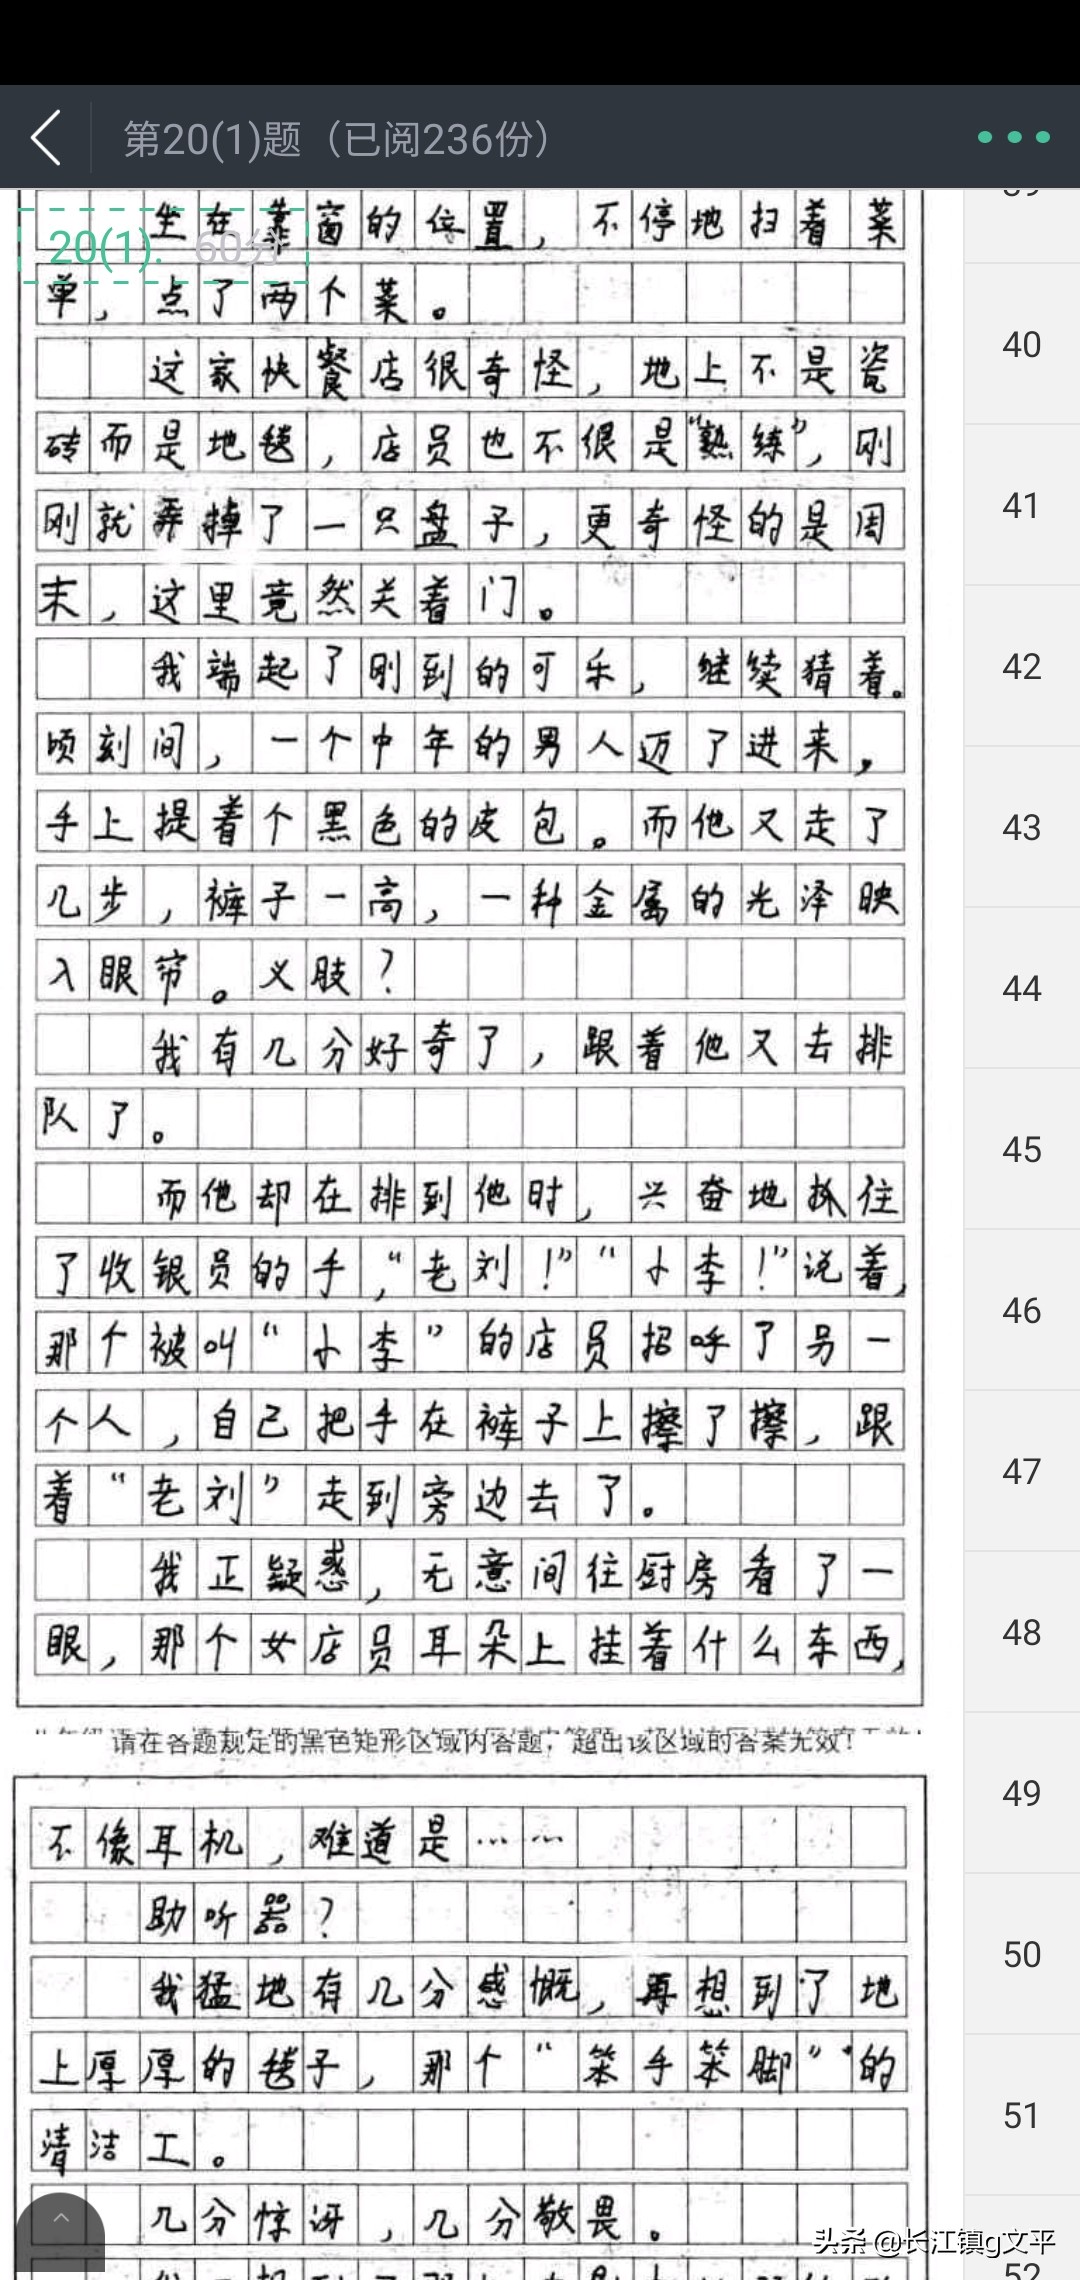 第20(1)题（已阅236份）
坐在靠窗的位置，不停地扫着菜
20(1). 60分
单，点了两个菜。
这家快餐店很奇怪，地上不是瓷
砖而是地毯，店员也不很是“熟练”，刚
刚就弄掉了一只盘子，更奇怪的是周
末，这里竟然关着门。
我端起了刚到的可乐，继续猜着。
顷刻间，一个中年的男人迈了进来，
手上提着个黑色的皮包。而他又走了
几步，裤子一高，一种金属的光泽映
入眼帘。义肢？
我有几分好奇了，跟着他又去排
队了。
而他却在排到他时，兴奋地抓住
了收银员的手，“老刘！”“小李！”说着，
那个被叫“小李”的店员招呼了另一
个人，自己把手在裤子上擦了擦，跟
着“老刘”走到旁边去了。
我正疑惑，无意间往厨房看了一
眼，那个女店员耳朵上挂着什么东西，
请在各题规定的黑色矩形区域内答题，超出该区域的答案无效！
不像耳机，难道是……
助听器？
我猛地有几分感慨，再想到了地
上厚厚的毯子，那个“笨手笨脚”的
清洁工。
几分惊讶，几分敬畏。
40
41
42
43
44
45
46
47
48
49
50
51
52
头条 @长江镇g文平